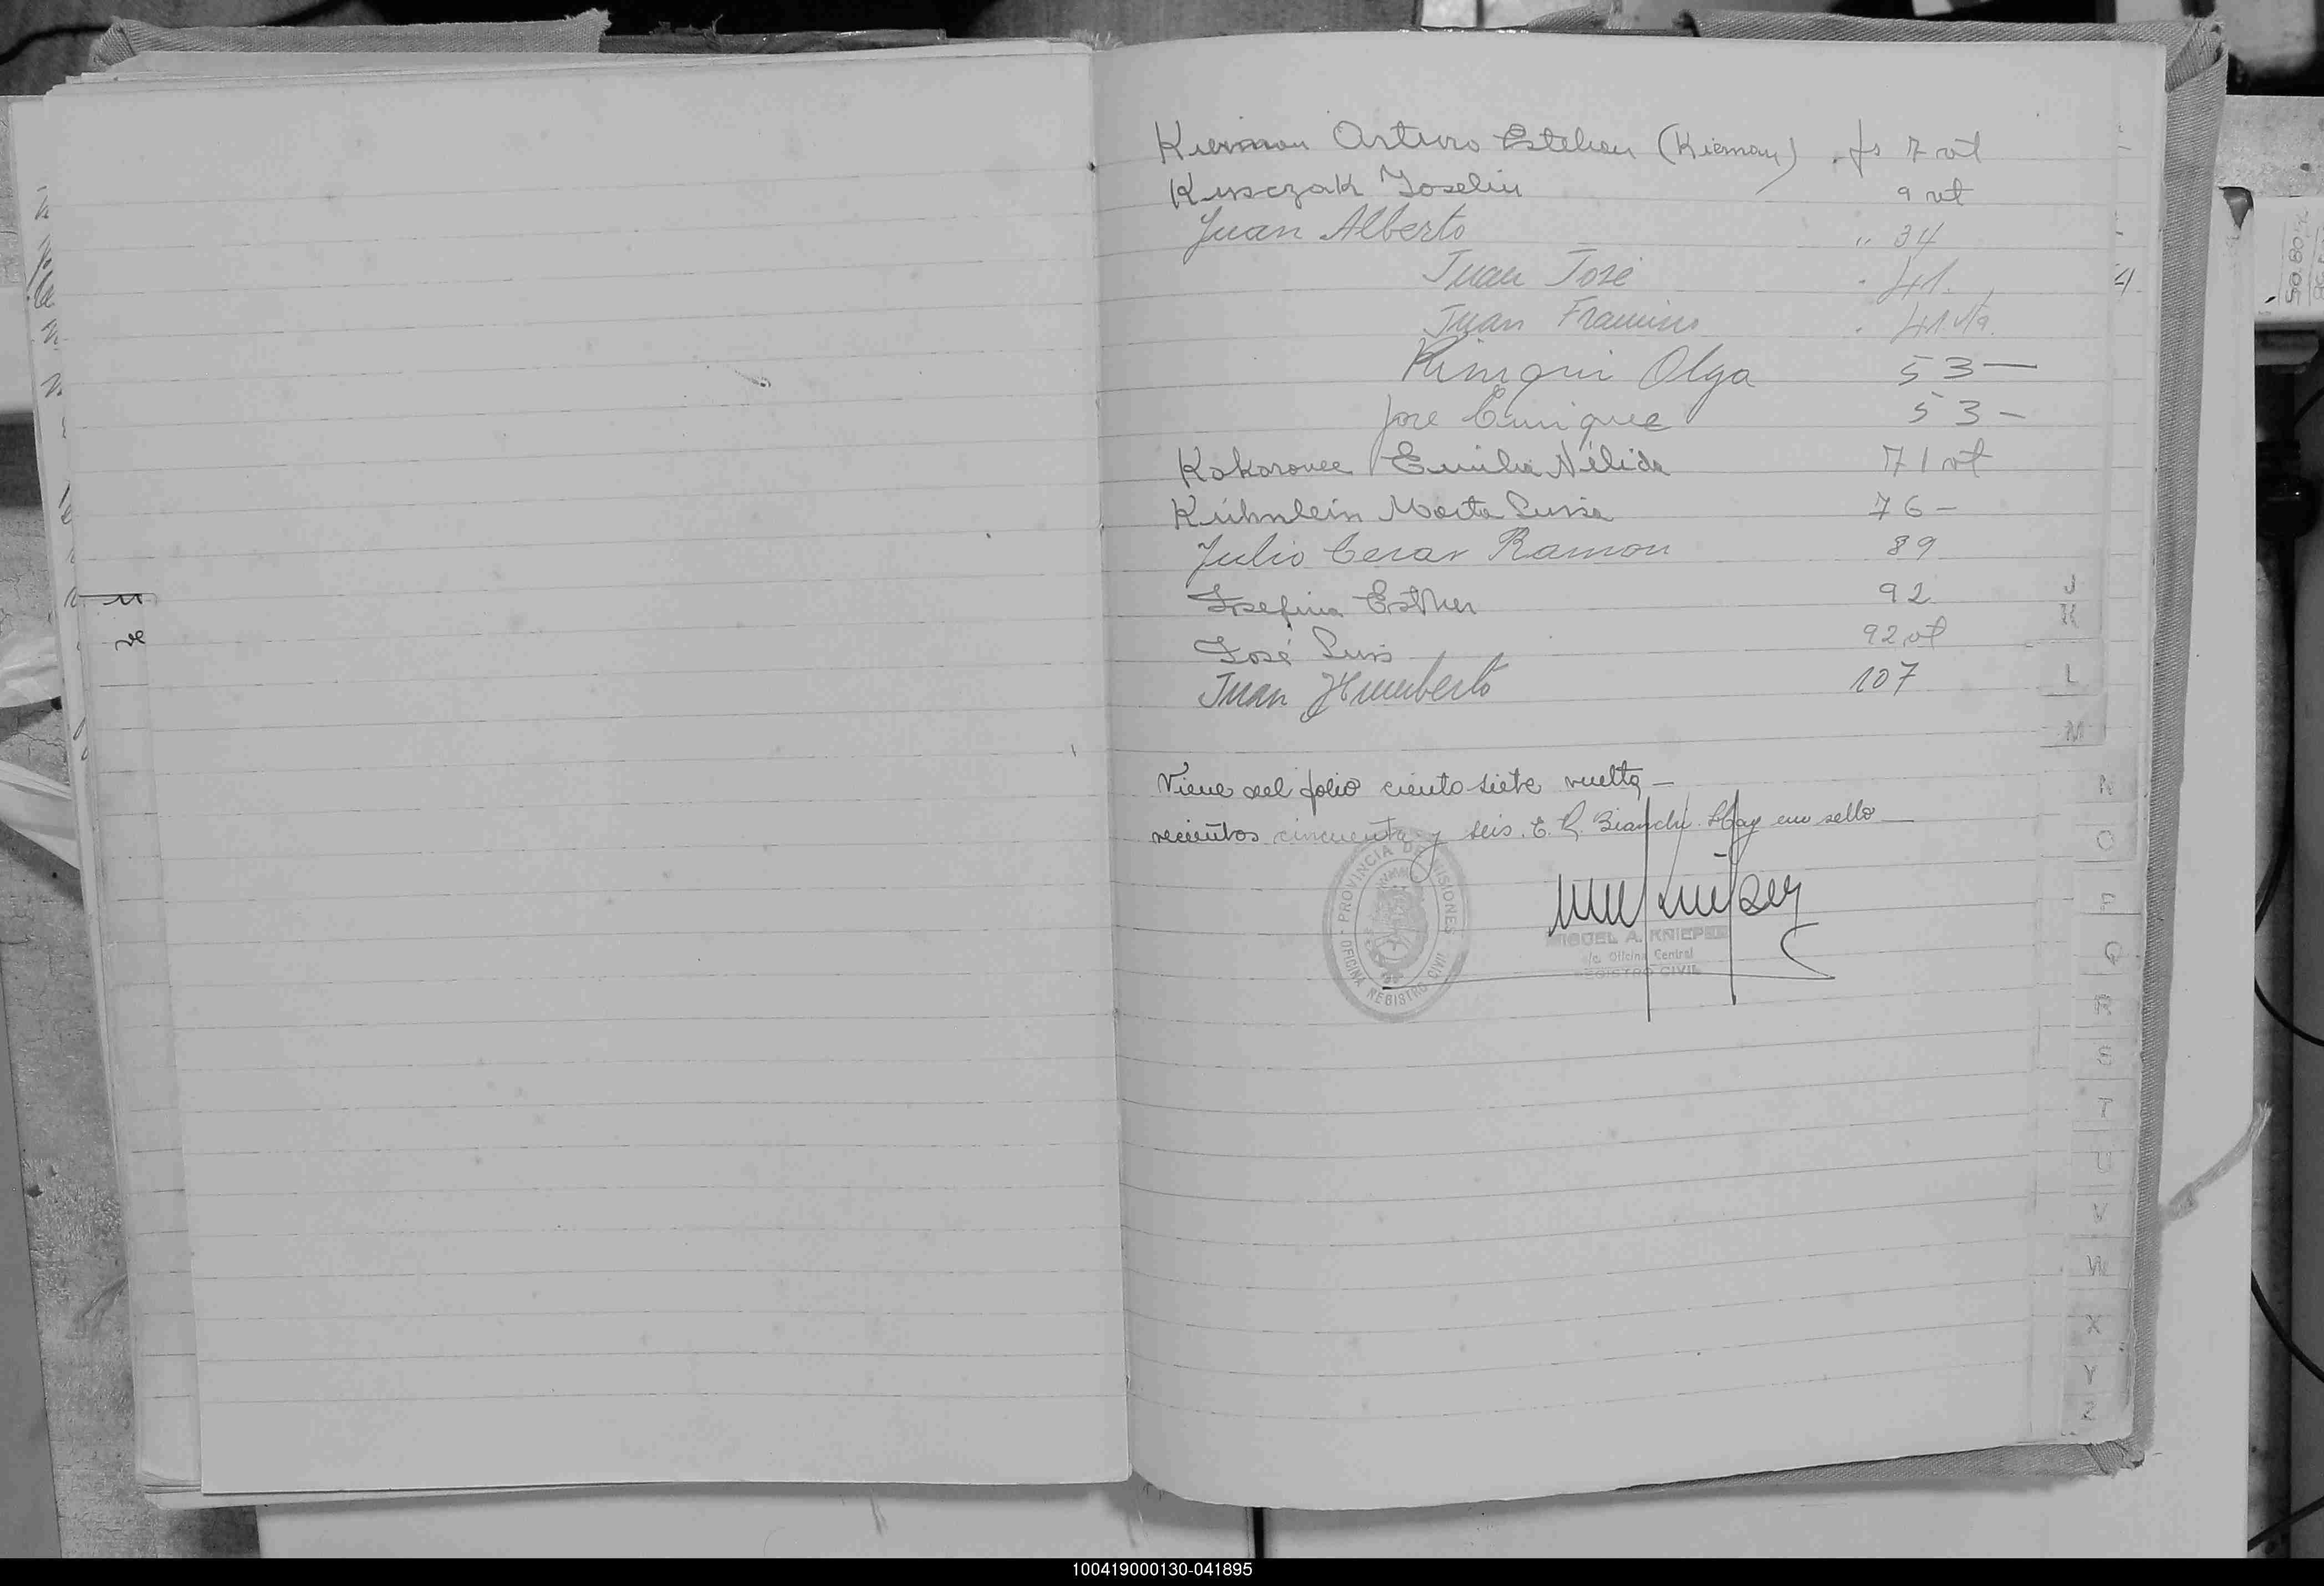 Kiernan Arturo Esteban (Kiernan) . fs 7 vt
Kusczak Joselin 9 vt
Juan Alberto " 34
Juan José . 41.
Juan Francisco . 41 vta.
Olga 53 —
Jose Enrique 53 —
Emilia Nélida 71 vt
Kühnlein Marta Luisa 76 —
Julio Cesar Ramon 89
Josefina Esther 92
José Luis 92 vt
Juan Humberto 107
Viene del folio ciento siete vuelta —
recientos cincuenta y seis. E. R. Bianchi. Hay un sello —
PROVINCIA DE MISIONES
OFICINA REGISTRO CIVIL
MIGUEL A. KNIEPER
a/c Oficina Central
REGISTRO CIVIL
J
K
L
M
N
O
P
Q
R
S
T
U
V
W
X
Y
Z
100419000130-041895